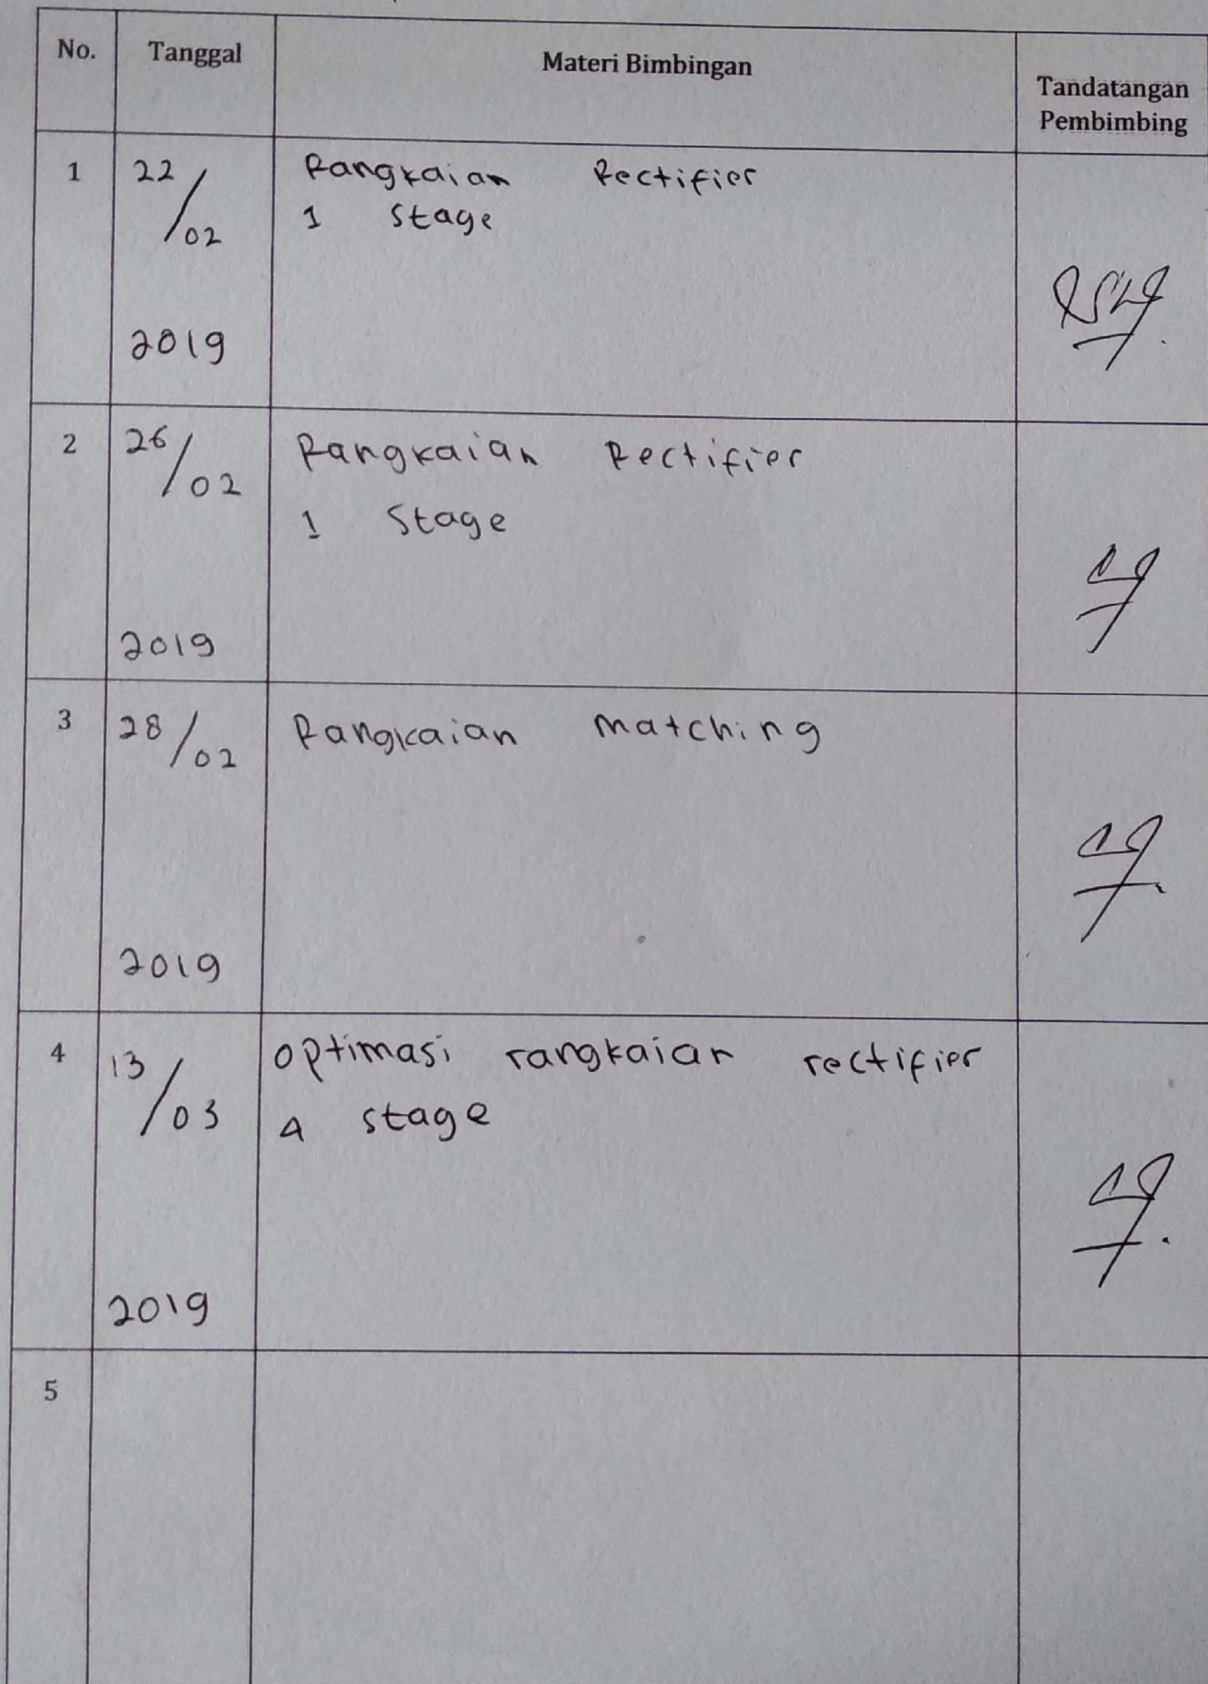 No. Tanggal Materi Bimbingan Tandatangan
Pembimbing
1 22/02 Rangkaian Rectifier
1 stage
2019
2 26/02 Rangkaian Rectifier
1 Stage
2019
3 28/02 Rangkaian matching
2019
4 13/03 optimasi rangkaian rectifier
4 stage
2019
5